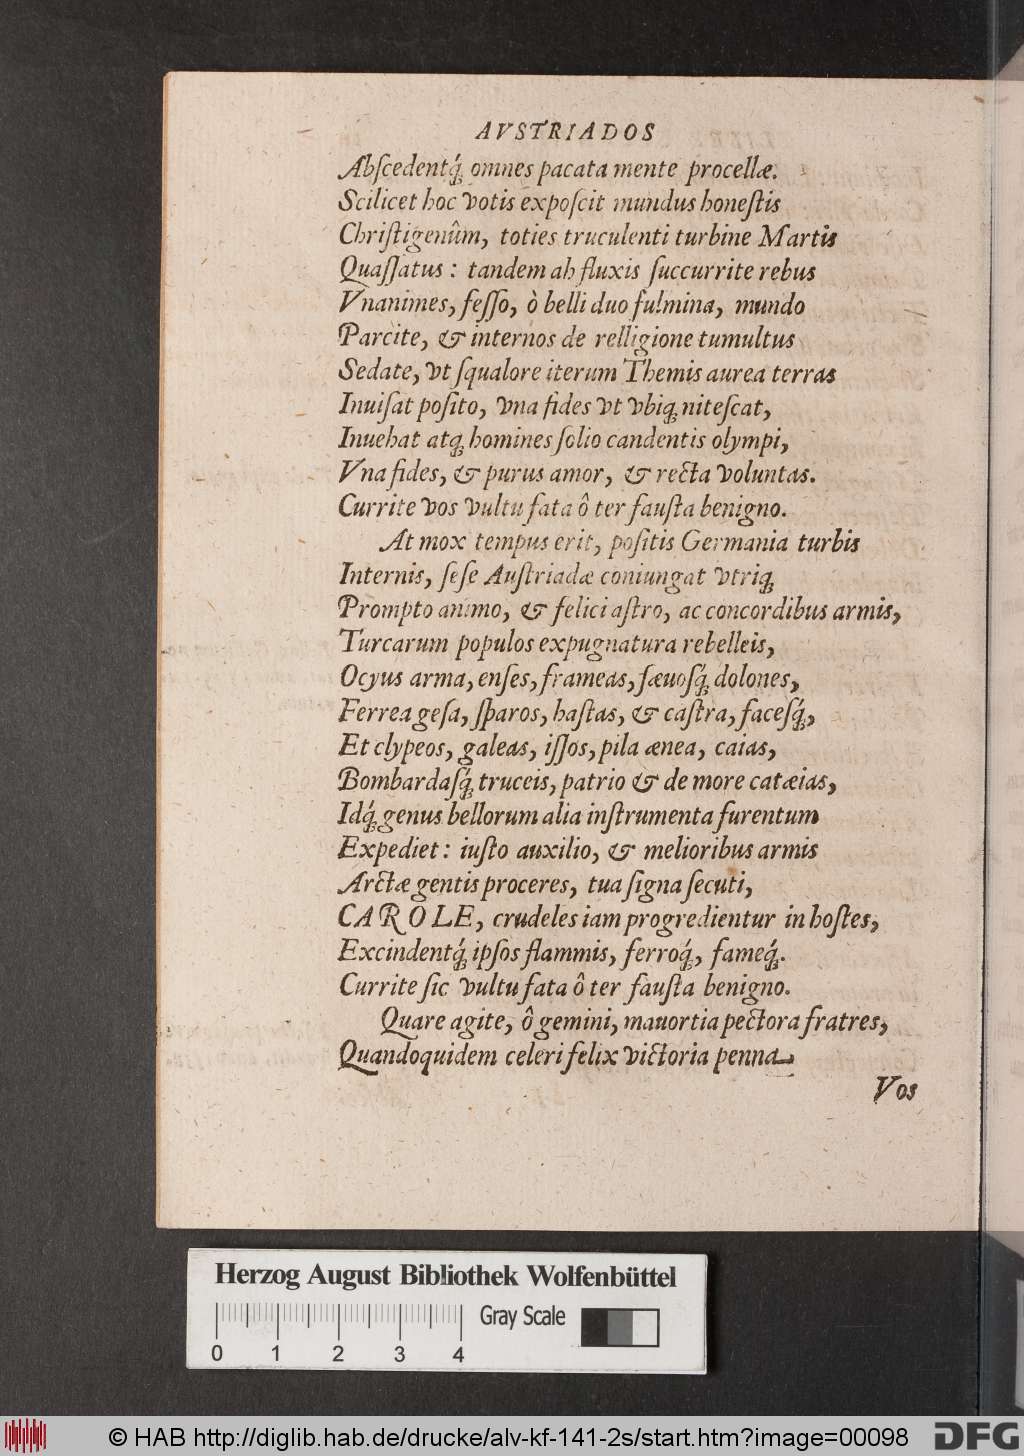 AVSTRIADOS
Abſcedentq́; omnes pacata mente procellæ.
Scilicet hoc votis expoſcit mundus honeſtis
Chriſtigenûm, toties truculenti turbine Martis
Quaſſatus: tandem ah fluxis ſuccurrite rebus
Vnanimes, feſſo, ò belli duo fulmina, mundo
Parcite, & internos de relligione tumultus
Sedate, vt ſqualore iterum Themis aurea terras
Inuiſat poſito, vna fides vt vbiq; niteſcat,
Inuehat atq; homines ſolio candentis olympi,
Vna fides, & purus amor, & recta voluntas.
Currite vos vultu fata ô ter fauſta benigno.
At mox tempus erit, poſitis Germania turbis
Internis, ſeſe Auſtriadæ coniungat vtriq;
Prompto animo, & felici aſtro, ac concordibus armis,
Turcarum populos expugnatura rebelleis,
Ocyus arma, enſes, frameas, ſæuoſq́; dolones,
Ferrea geſa, ſparos, haſtas, & caſtra, faceſq́;,
Et clypeos, galeas, iſſos, pila ænea, caias,
Bombardaſq́; truceis, patrio & de more catæias,
Idq́; genus bellorum alia inſtrumenta furentum
Expediet: iuſto auxilio, & melioribus armis
Arctæ gentis proceres, tua ſigna ſecuti,
CAROLE, crudeles iam progredientur in hoſtes,
Excindentq́; ipſos flammis, ferroq́;, fameq́;.
Currite ſic vultu fata ô ter fauſta benigno.
Quare agite, ô gemini, mauortia pectora fratres,
Quandoquidem celeri felix victoria penna
Vos
Herzog August Bibliothek Wolfenbüttel
Gray Scale
0 1 2 3 4
© HAB http://diglib.hab.de/drucke/alv-kf-141-2s/start.htm?image=00098
DFG